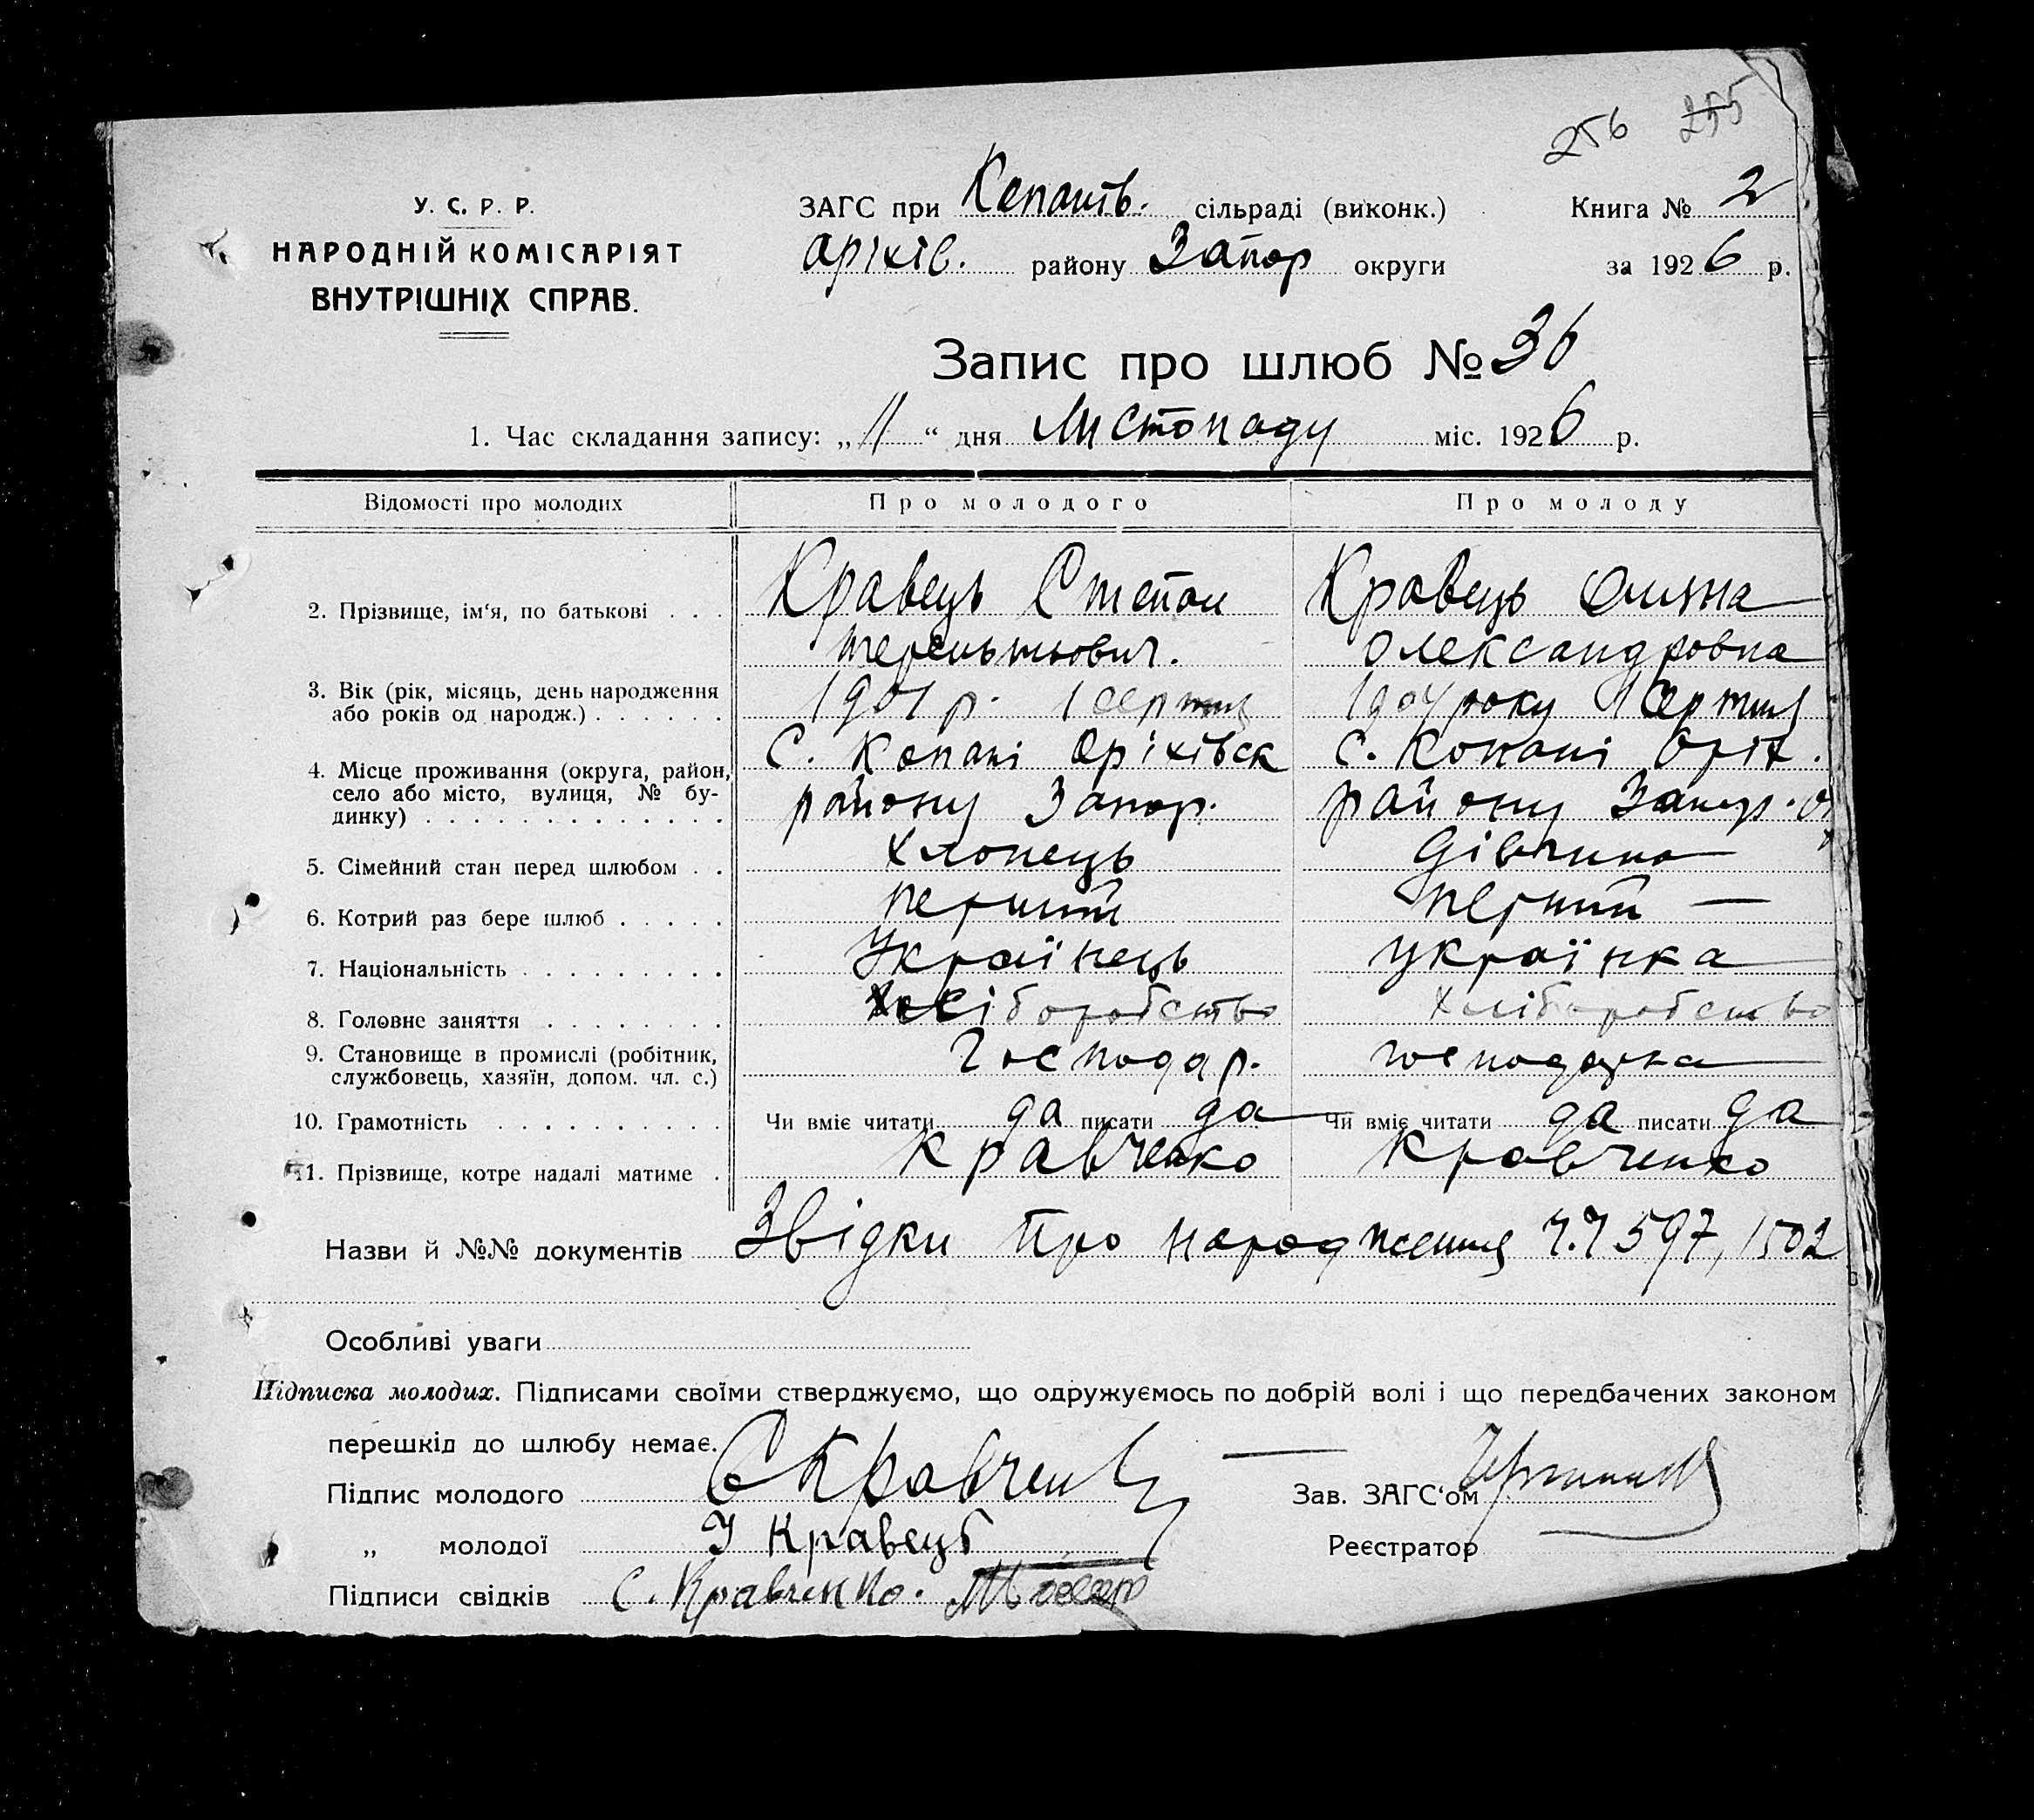 256 255
У. С. Р. Р.
НАРОДНІЙ КОМІСАРІЯТ
ВНУТРІШНІХ СПРАВ.
ЗАГС при Копанів. сільраді (виконк.) Книга № 2
Оріхів. району Запор округи за 1926 р.
Запис про шлюб № 36
1. Час складання запису: „11“ дня Листопаду міс. 1926 р.
Відомості про молодих Про молодого Про молоду
2. Прізвище, ім‘я, по батькові . . . Кравець Степан Кравець
Терентьович. Олександровна
3. Вік (рік, місяць, день народження 1901 р. 1 серпня 1904 року 1 Серпня
або років од народж.) . . . . . .
С. Копані Оріхівск С. Копані Оріх.
4. Місце проживання (округа, район, село або місто, вулиця, № бу-
динку) . . . . . . . . . . . . . району Запор. району Запор.
5. Сімейний стан перед шлюбом . . Хлопець Дівчина
6. Котрий раз бере шлюб . . . . . перший перший —
7. Національність . . . . . . . . . Українець українка
8. Головне заняття . . . . . . . . Хліборобство Хліборобство
9. Становище в промислі (робітник,
службовець, хазяїн, допом. чл. с.) Господар. господарка
10. Грамотність . . . . . . . . . . Чи вміє читати да писати да Чи вміє читати да писати да
11. Прізвище, котре надалі матиме . Кравченко Кравченко
Назви й №№ документів Звідки про народження Ч.Ч 597, 1502
Особливі уваги
Підписка молодих. Підписами своїми стверджуємо, що одружуємось по добрій волі і що передбачених законом
перешкід до шлюбу немає.
Підпис молодого СКравчен Зав. ЗАГС‘ом
„ молодої У Кравець Реєстратор
Підписи свідків С. Кравченко.